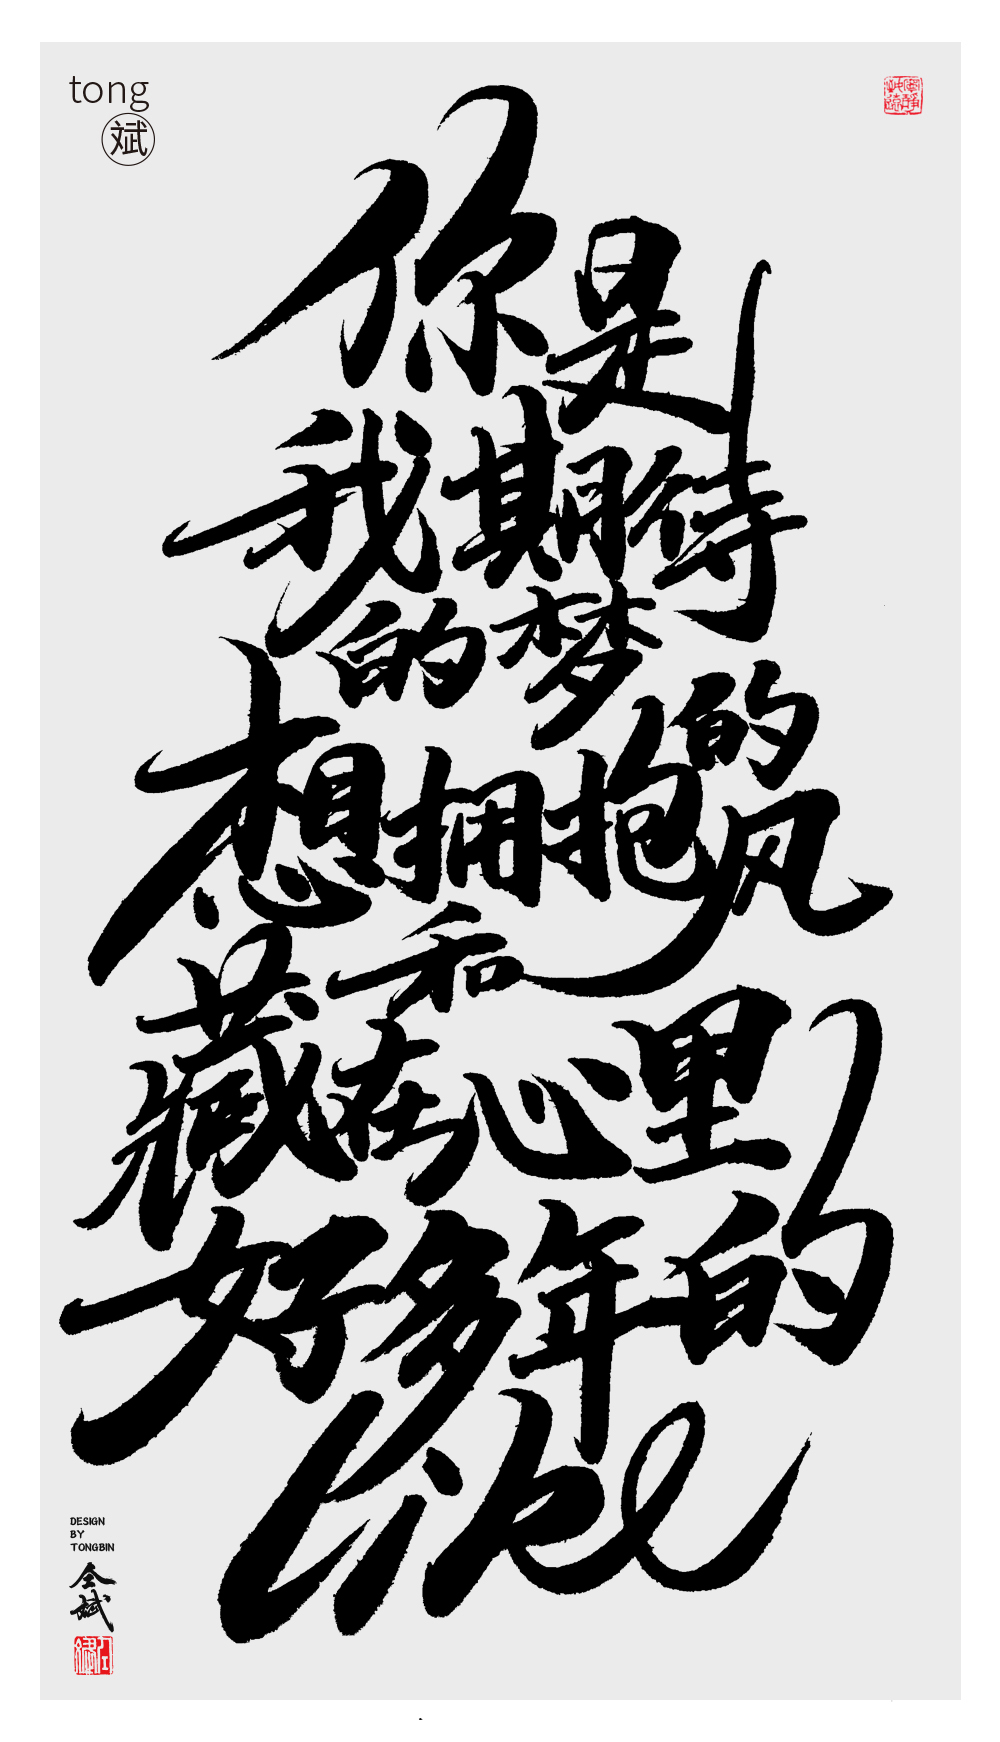 tong
斌
你是
我期待
的梦
想拥抱的
风
和
藏在心里
好多年的
like
DESIGN
BY
TONGBIN
仝斌